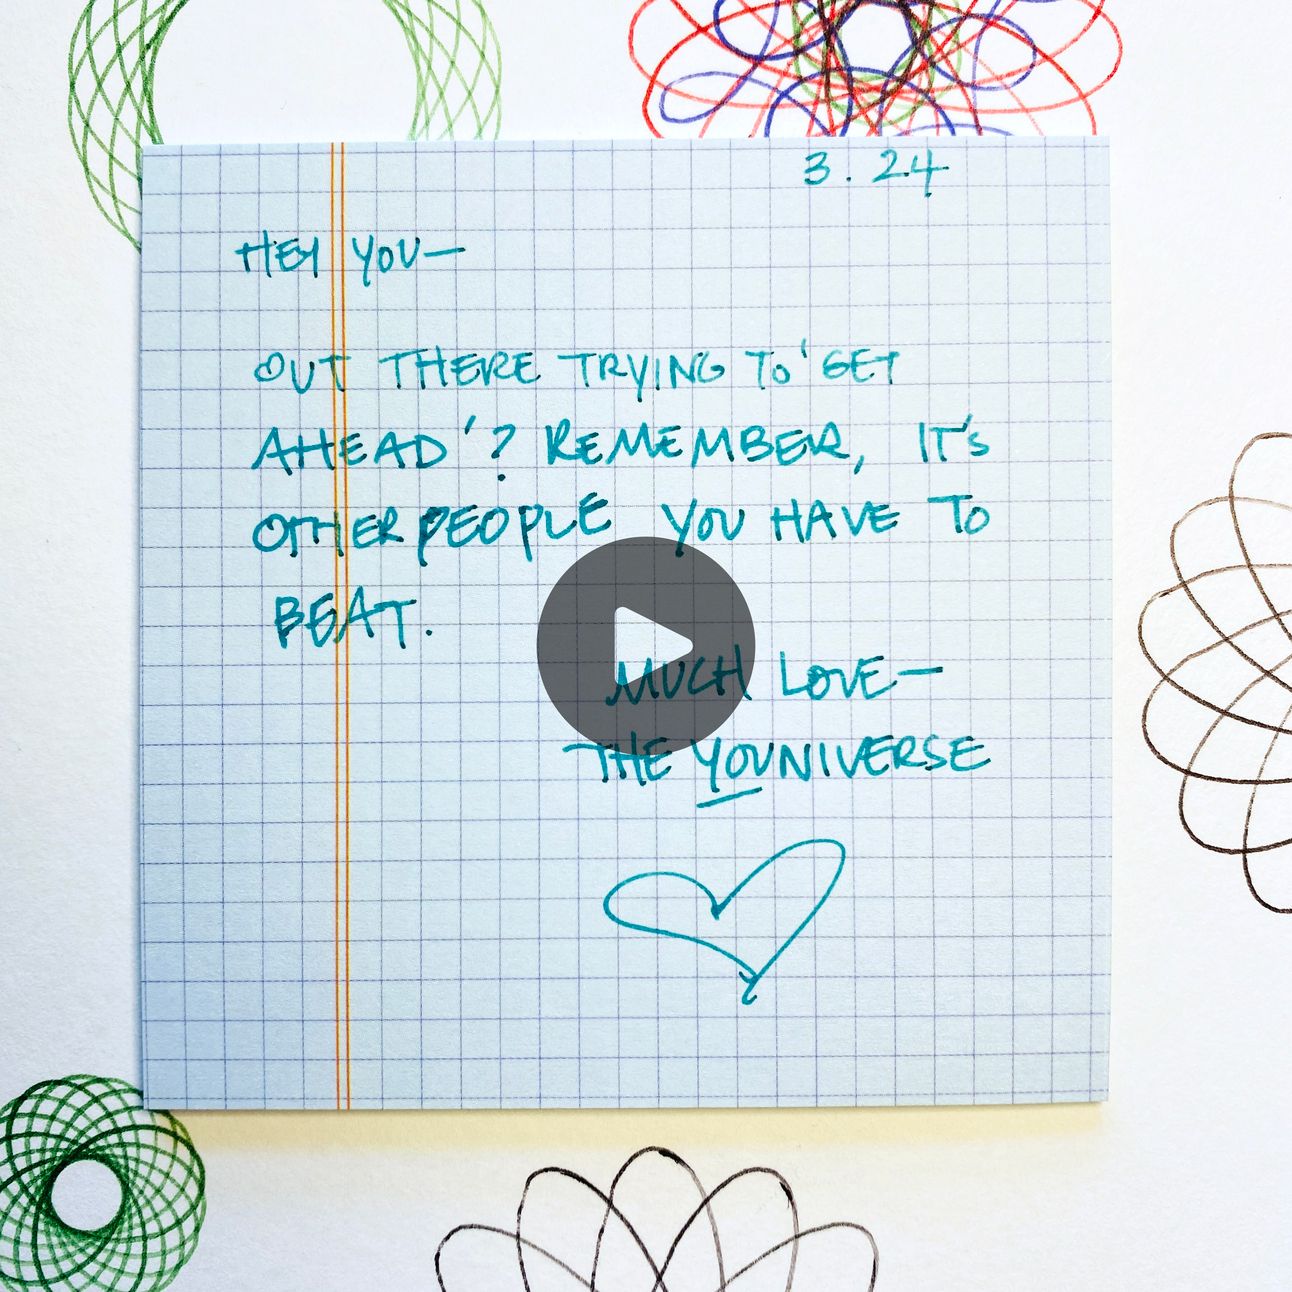 3.24
HEY YOU—
OUT THERE TRYING TO 'GET
AHEAD'? REMEMBER, IT'S
OTHER PEOPLE YOU HAVE TO
BEAT.
MUCH LOVE—
THE YOUNIVERSE